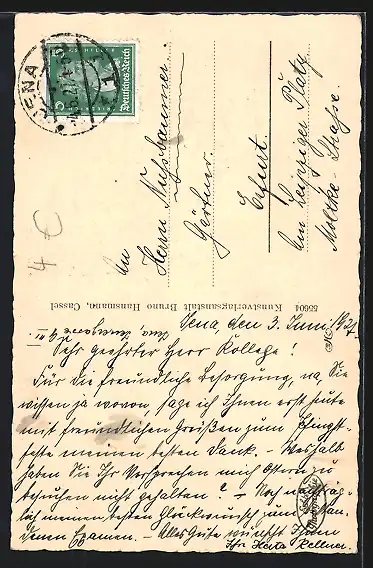 JENA
Deutsches Reich
5
5
An
Herrn Nussbaumer.
Gärtner.
Erfurt.
Am Leipziger Platz
Moltke-Straße.
4 €
55604 Kunstverlagsanstalt Bruno Hansmann, Cassel
Jena, den 3. Juni 1927.
Sehr geehrter Herr Kollege!
Für die freundliche Besorgung, na, Sie
wissen ja wovon, sage ich Ihnen erst heute
mit freundlichen Grüßen zum Pfingst-
feste meinen besten Dank. – Weshalb
haben Sie Ihr Versprechen mich Ostern zu
besuchen nicht gehalten? – Noch nachträg-
lich meinen besten Glückwunsch zum
denen Examen. – Alles Gute wünscht Ihnen
Ihr Kellner.